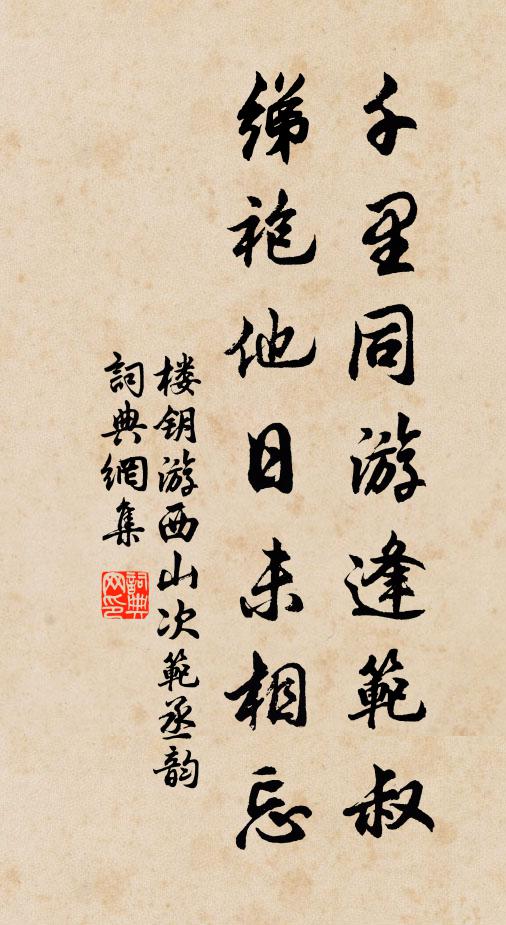 千里同游逢範叔
绨袍他日未相忘
楼钥游西山次範丞韵
詞典網集
詞典网印